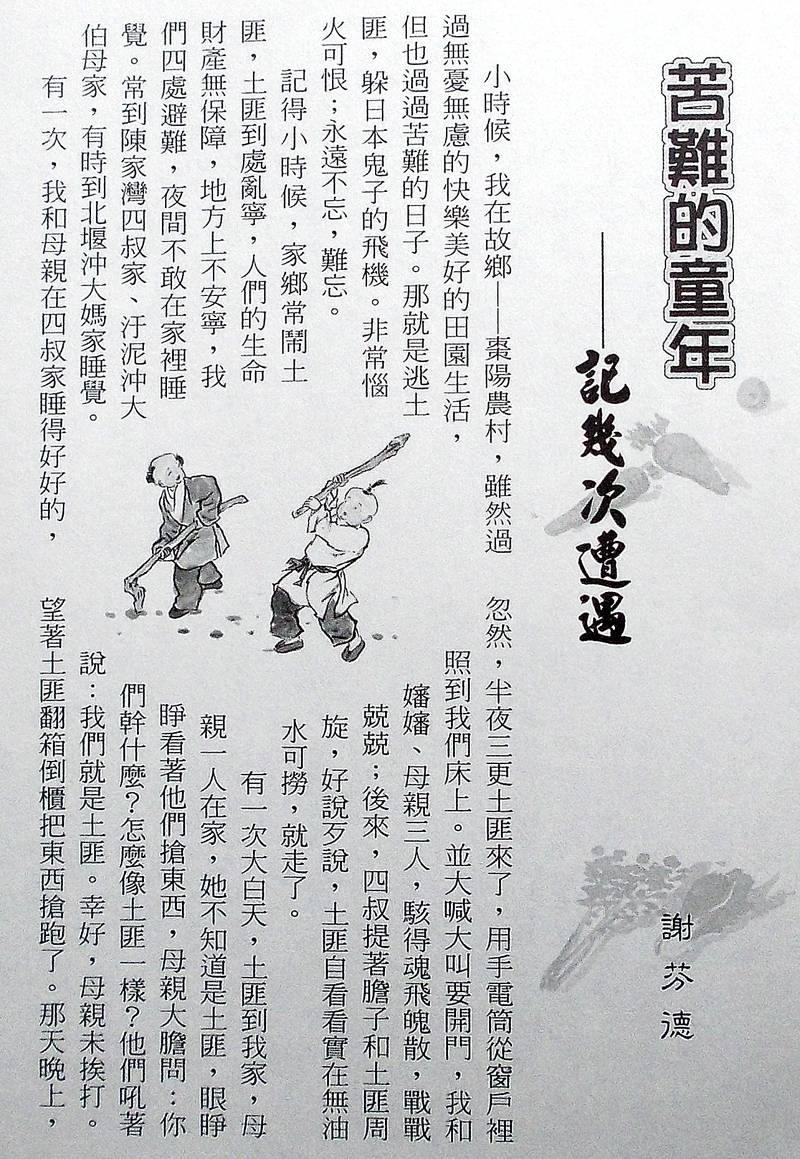 苦難的童年
——記幾次遭遇
謝芬德
小時候，我在故鄉——棗陽農村，雖然過
過無憂無慮的快樂美好的田園生活，
但也過過苦難的日子。那就是逃土
匪，躲日本鬼子的飛機。非常惱
火可恨；永遠不忘，難忘。
記得小時候，家鄉常鬧土
匪，土匪到處亂寧，人們的生命
財產無保障，地方上不安寧，我
們四處避難，夜間不敢在家裡睡
覺。常到陳家灣四叔家、汙泥沖大
伯母家，有時到北堰沖大媽家睡覺。
有一次，我和母親在四叔家睡得好好的，
忽然，半夜三更土匪來了，用手電筒從窗戶裡
照到我們床上。並大喊大叫要開門，我和
嬸嬸、母親三人，駭得魂飛魄散，戰戰
兢兢；後來，四叔提著膽子和土匪周
旋，好說歹說，土匪自看看實在無油
水可撈，就走了。
有一次大白天，土匪到我家，母
親一人在家，她不知道是土匪，眼睜
睜看著他們搶東西，母親大膽問：你
們幹什麼？怎麼像土匪一樣？他們吼著
說：我們就是土匪。幸好，母親未挨打。
望著土匪翻箱倒櫃把東西搶跑了。那天晚上，